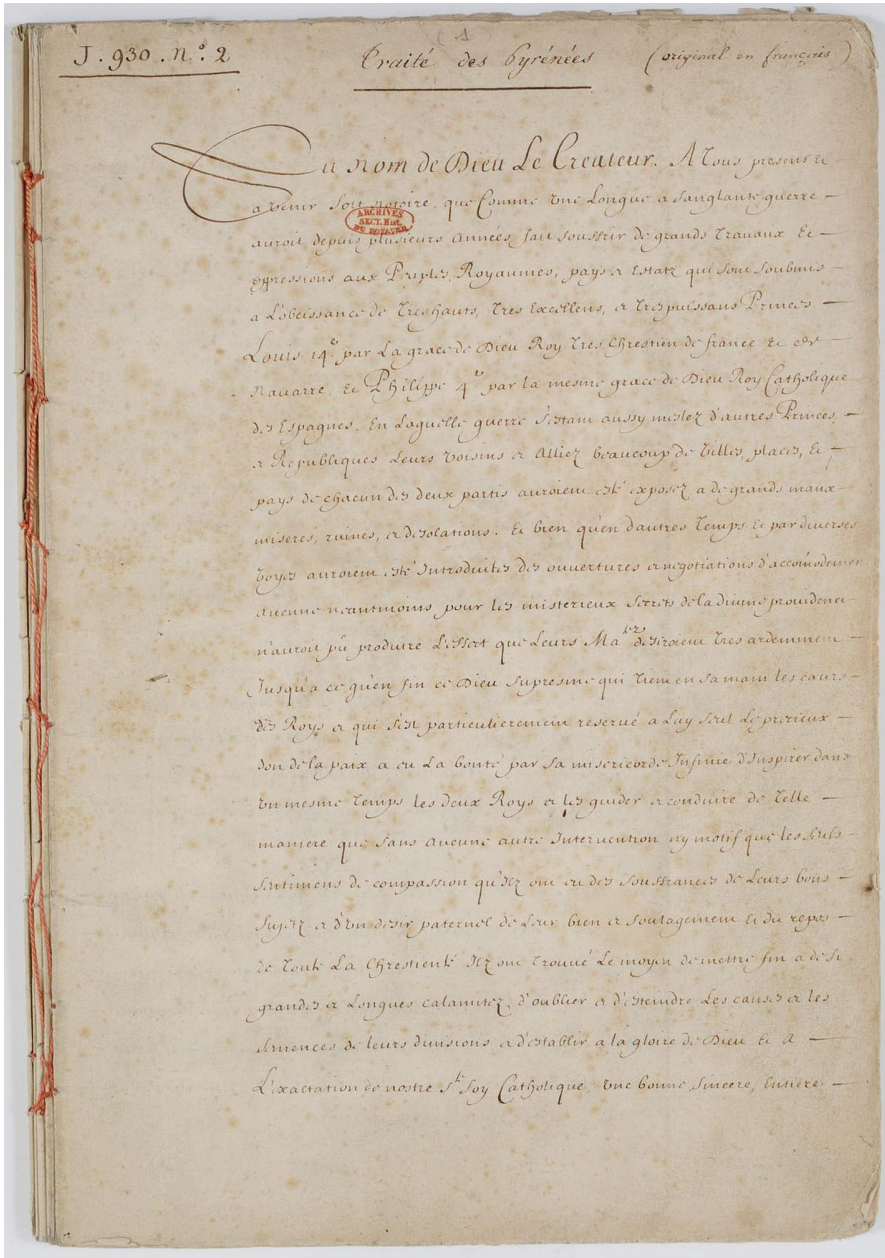 (1)
J. 930. N.° 2
Traité des Pyrénées (original en français)
Au nom de Dieu Le Createur. A Tous presens et
a venir soit notoire, que Comme une Longue et sanglante guerre
ARCHIVES
SECT. HIST.
DU ROYAUME
auroit depuis plusieurs Années, fait souffrir de grands Travaux Et
oppressions aux Peuples, Royaumes, pays et Estatz qui sont soubmis
a L'obeissance de Tres hauts, Tres Excellens, et Tres puissans Princes
Louis 14e par La grace de Dieu Roy Tres Chrestien de france Et de
Navarre, Et Philippe 4e par la mesme grace de Dieu Roy Catholique
des Espagnes, En Laquelle guerre s'estant aussy meslez d'autres Princes,
et Republiques Leurs voisins et Alliez beaucoup de villes, places, Et
pays de chacun des deux partis auroient esté exposez a de grands maux
miseres, ruines, et desolations. Et bien qu'en d'autres Temps Et par diverses
voyes auroient esté Introduites des ouvertures et negotiations d'accomodement
aucune neantmoins pour les misterieux secrets de la divine providence
n'auroit pû produire L'effect que Leurs Matez desiroient Tres ardemment
Jusqu'a ce qu'en fin ce Dieu supresme qui Tient en sa main les cœurs
des Roys et qui s'est particulierement reservé a Luy seul Le precieux
don de la paix a eu La bonté par sa misericorde Infinie d'Inspirer dans
un mesme Temps les deux Roys et les guider et conduire de Telle
maniere que sans aucune autre Intervention ny motif que les seuls
sentimens de compassion qu'Ilz ont eu des souffrances de Leurs bons
sujetz et d'Un desir paternel de Leur bien et soulagement Et du repos
de Toute La Chrestienté Ilz ont Trouvé Le moyen de mettre fin a de si
grandes et Longues calamitez, d'oublier et d'esteindre Les causes et les
semences de leurs divisions et d'establir a la gloire de Dieu Et A
L'exactation de nostre ste foy Catholique, une bonne, sincere, Entiere